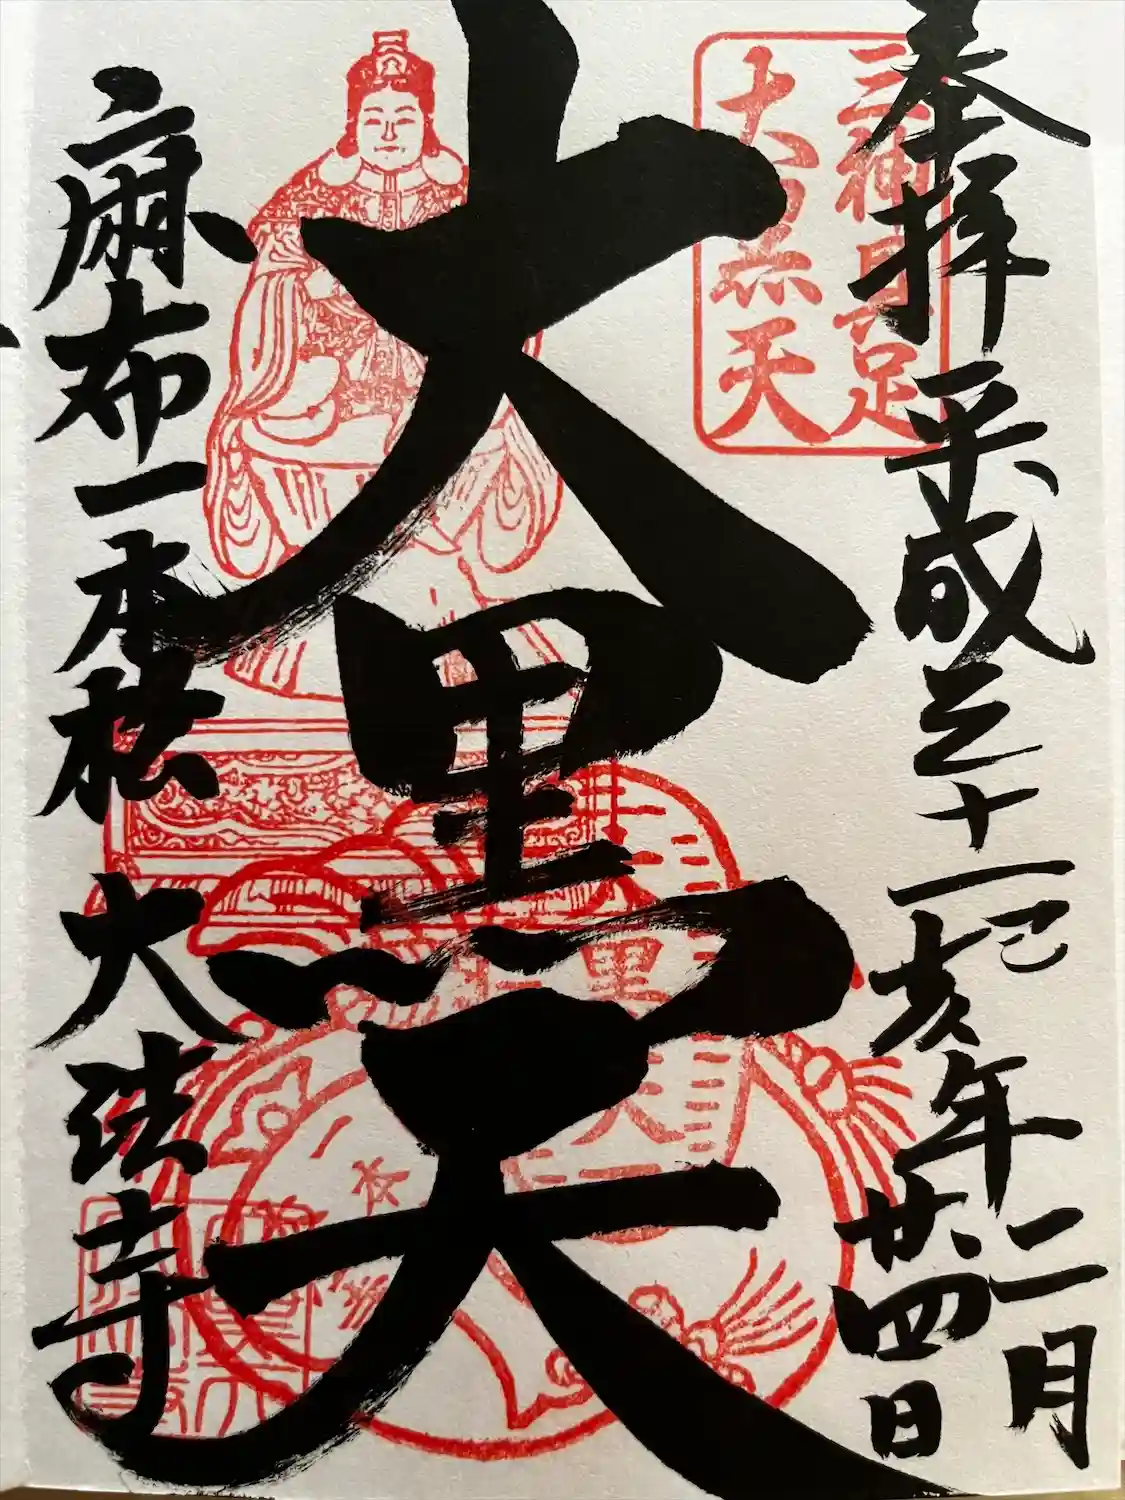 奉拝 平成三十一己亥年二月廿四日
三神具足
大黒天
大黒天
麻布一本松 大法寺